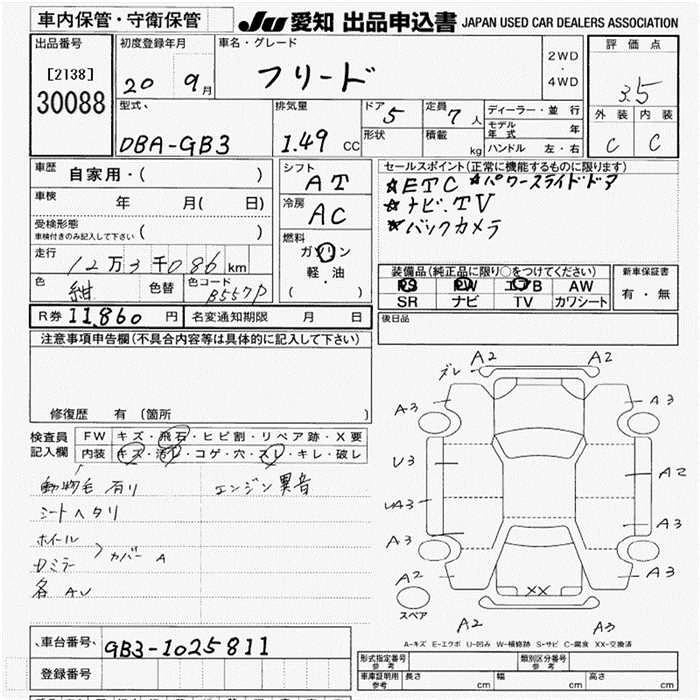 車内保管・守衛保管
JU 愛知 出品申込書 JAPAN USED CAR DEALERS ASSOCIATION
出品番号
[2138]
30088
初度登録年月
20 9月
車名・グレード
フリード
2WD
・
4WD
評価点
3.5
外装 内装
C C
型式
DBA-GB3
排気量
1.49 CC
ドア 5
形状
定員 7人
積載 kg
ディーラー・並行
モデル年式 年
ハンドル 左・右
車歴 自家用・( )
車検 年 月( 日)
受検形態
車検付きのみ記入して下さい ( )
走行 12万3千086km
色 紺 色替 色コード B557P
R券 11,860 円 名変通知期限 月 日
シフト
AT
冷房
AC
燃料
ガソリン
軽・油
( )
セールスポイント(正常に機能するものに限ります)
☆ETC ☆パワースライドドア
☆ナビ.TV
☆バックカメラ
装備品(純正品に限り○をつけてください)
PS PW エアB AW
SR ナビ TV カワシート
新車保証書
有・無
後日品
注意事項申告欄(不具合内容等は具体的に記入して下さい)
修復歴 有 (箇所 )
検査員記入欄
FW キズ・飛石・ヒビ割・リペア跡・X要
内装 キズ・汚レ・コゲ・穴・スレ・キレ・破レ
動物毛有り エンジン異音
シートヘタリ
ホイール
カバー A
各 AU
ズレ A2 A2
A3 A3
U3 A2
UA3 A3
A3 A3
A2
XX
スペア
A2 A3
A-キズ E-エクボ U-凹み W-補修跡 S-サビ C-腐食 XX-交換済
車台番号 GB3-1025811
登録番号
形式指定番号 参考
類別区分番号 参考
車庫証明用 参考 長さ cm 幅 cm 高さ cm